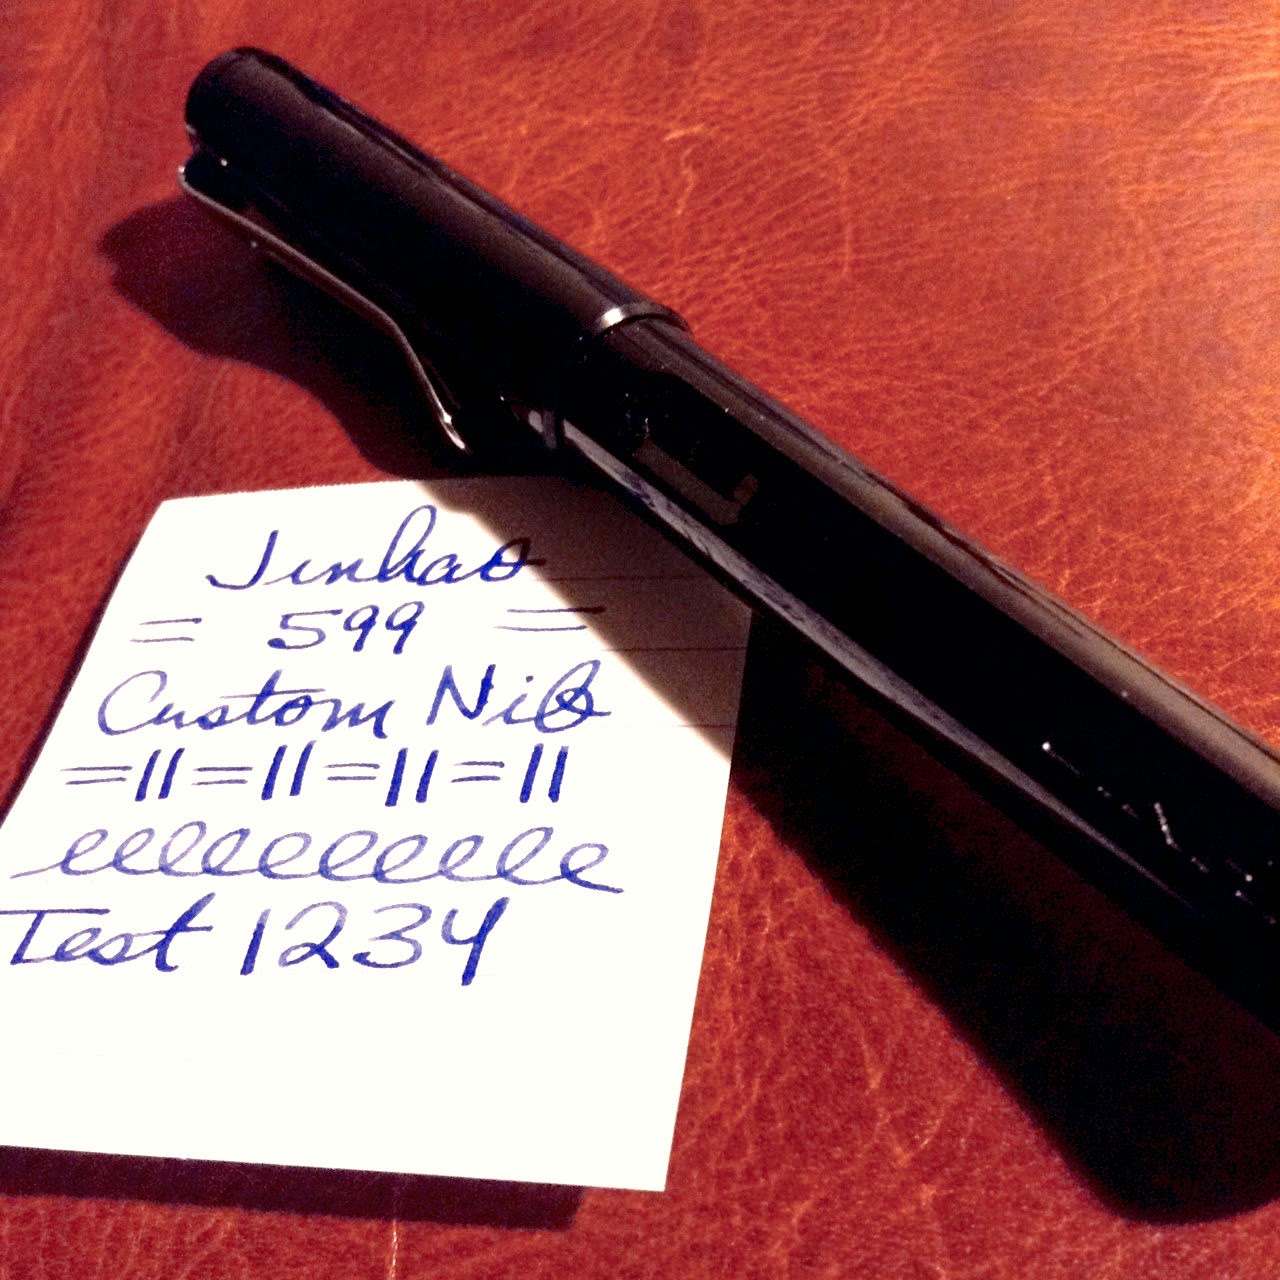 Jinhao
= 599 =
Custom Nib
=11=11=11=11
eleleeeeele
Test 1234